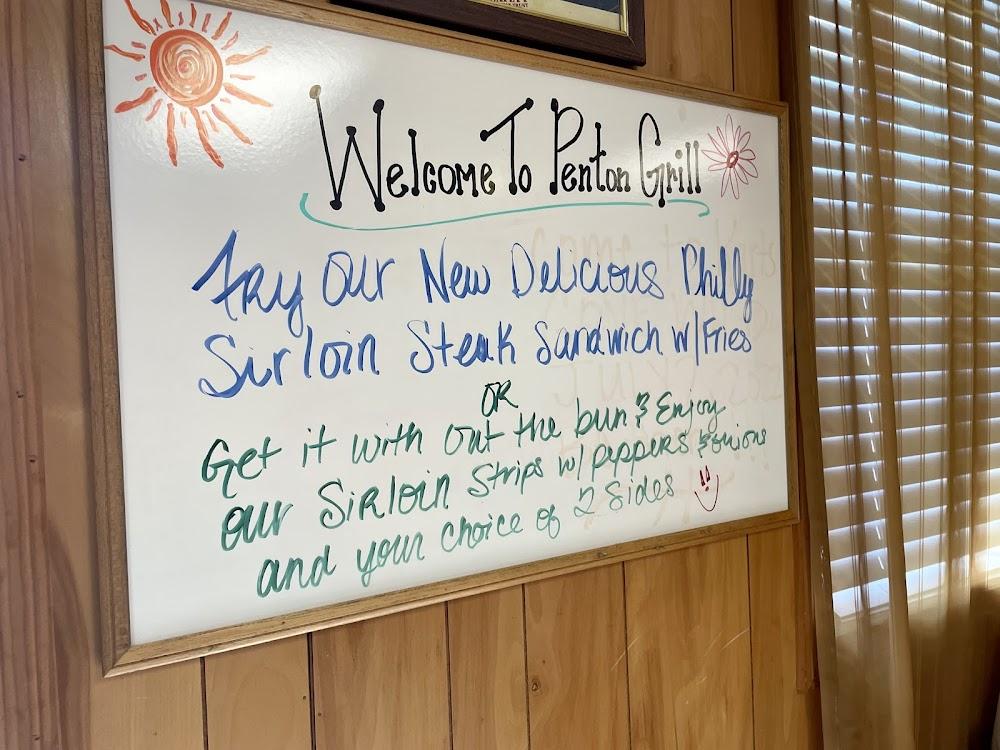 Welcome To Penton Grill
Try Our New Delicious Philly
Sirloin Steak Sandwich w/Fries
OR
Get it with out the bun & Enjoy
our Sirloin Strips w/ peppers & onions
and your choice of 2 Sides